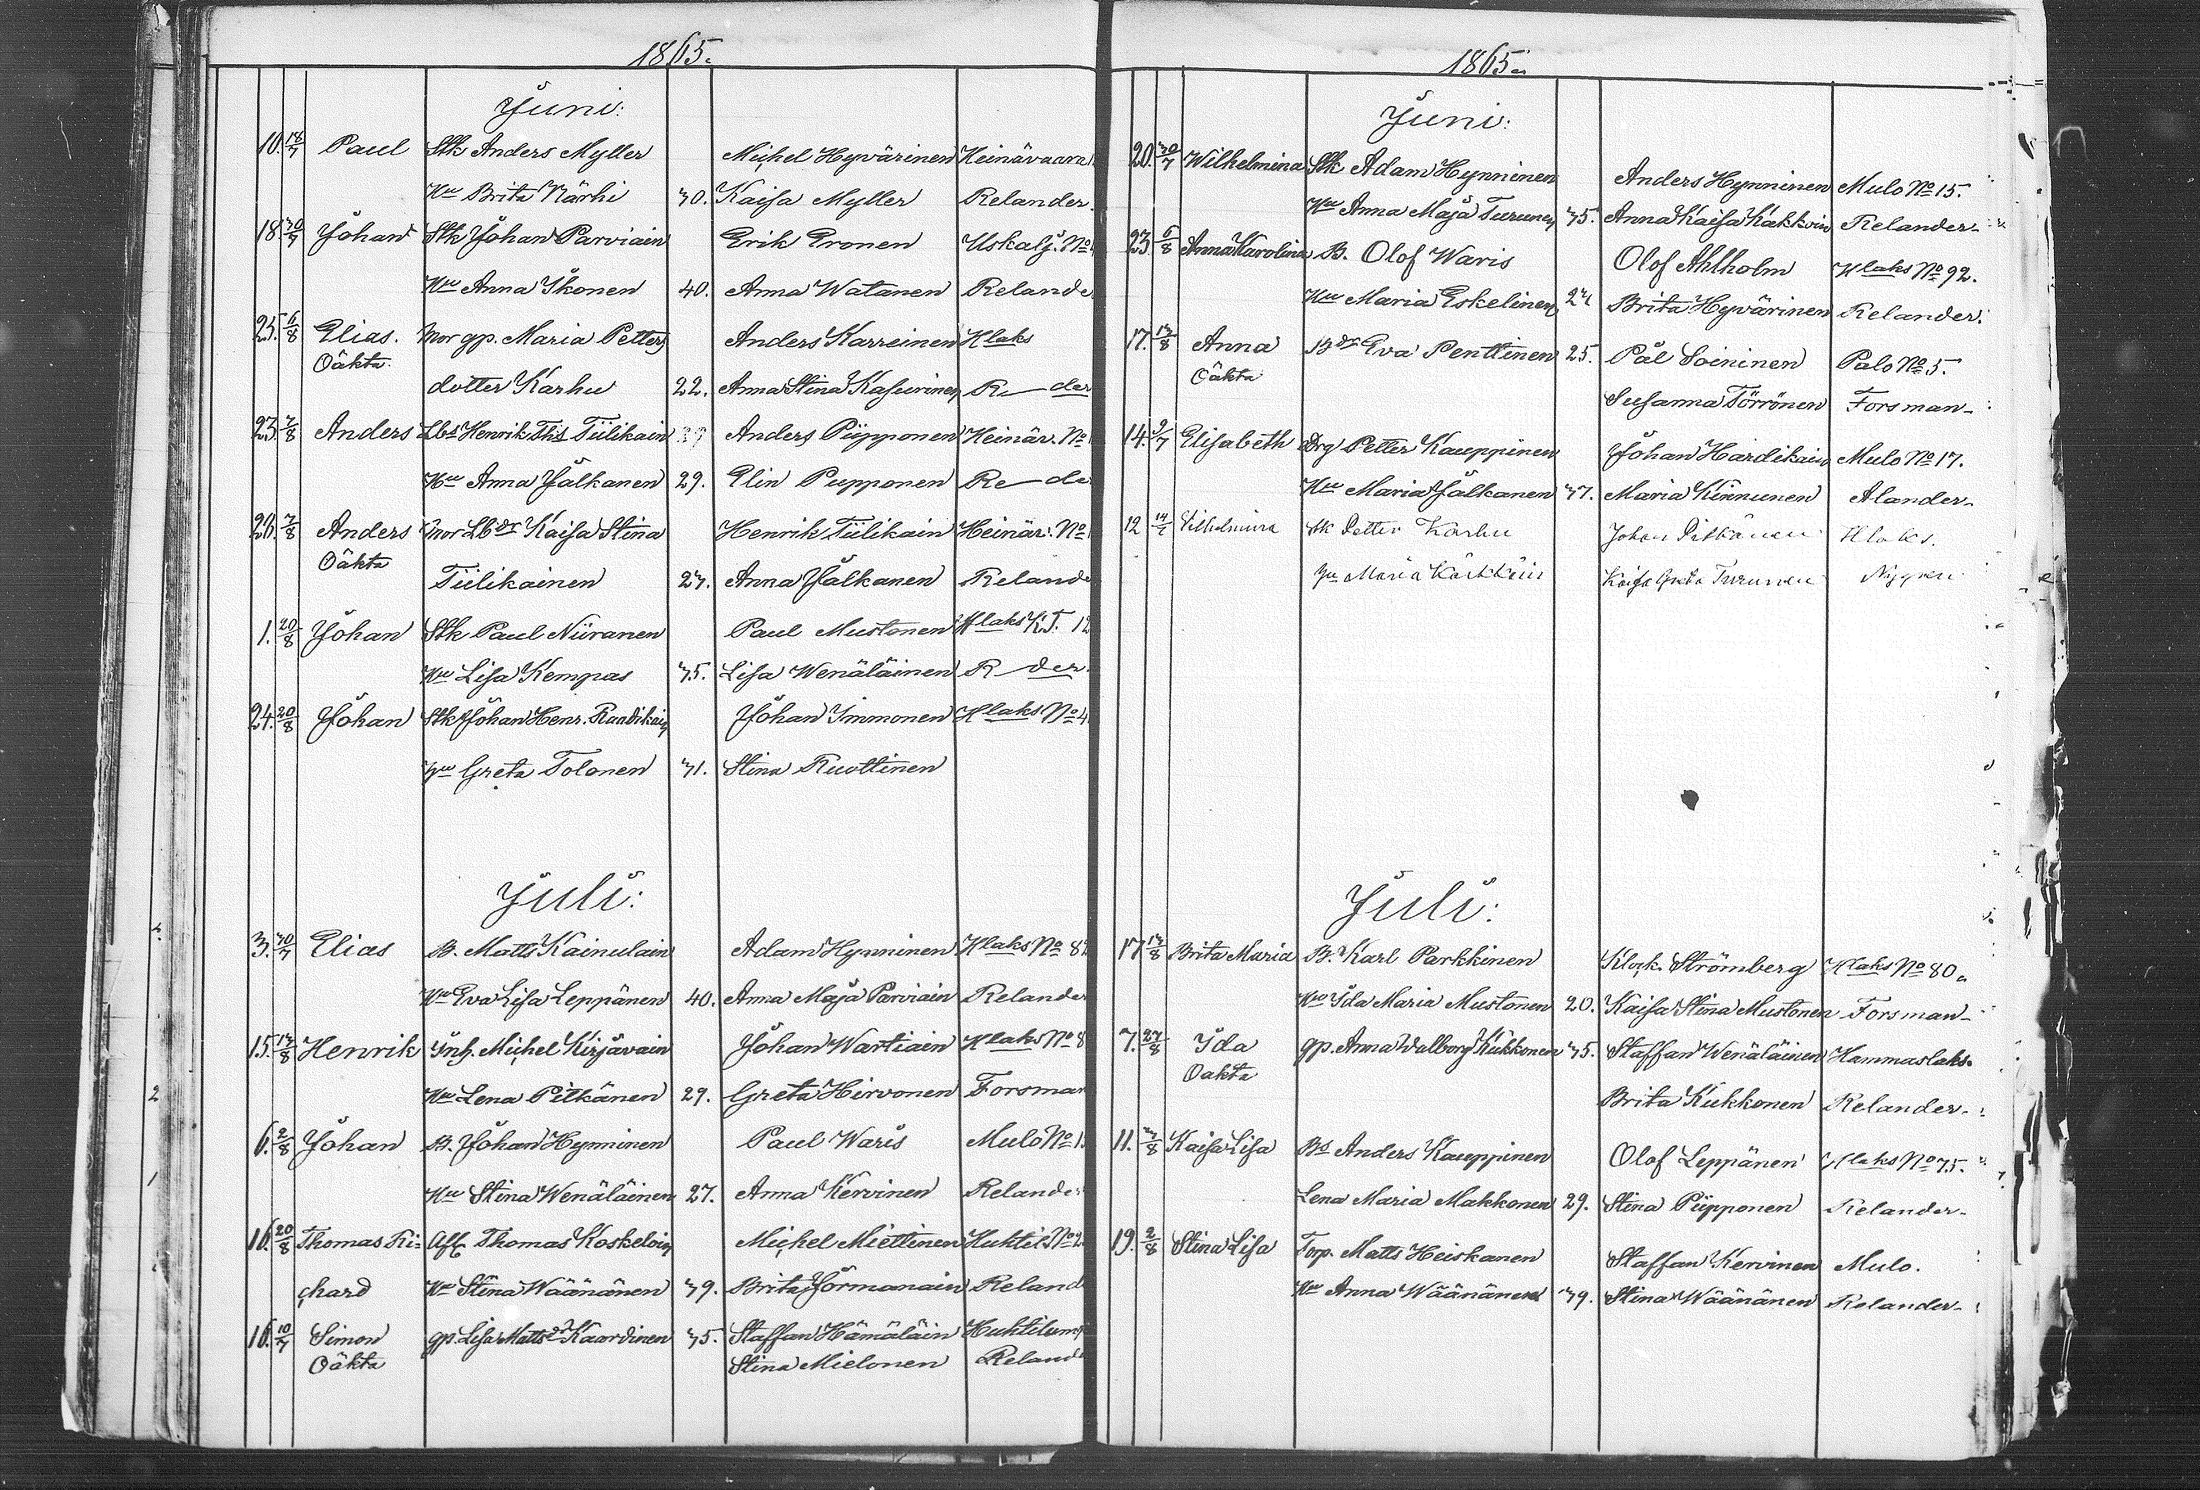 1865.
Juni:
10. 18/7 Paul Stk Anders Myller Michel Hyvärinen Heinävaara
Hu Brita Närhi 30. Kaisa Myller Relander.
18. 30/7 Johan Stk Johan Parviain Erik Eronen Uskalj. No
Hu Anna Ikonen 40. Anna Watanen Relande
25. 6/8 Elias. Mor gp. Maria Petters Anders Karreinen Hlaks
Oäkta. dotter Karhu 22. Anna Stina Kasurinen R—der
23. 7/8 Anders Lbs Henrik Ths Tiilikain Anders Piipponen Heinäv. No
Hu Anna Jalkanen 29. Elin Pupponen Re—de
26. 7/8 Anders Mor Lbdr Kaisa Stina Henrik Tiilikain Heinäv. No
Oäkta Tiilikainen 27. Anna Jalkanen Reland
1. 20/8 Johan Stk Paul Niiranen Paul Mustonen Hlaks K.T. 12
Hu Lisa Kempas 35. Lisa Wenäläinen R—der.
24. 20/8 Johan Stk Johan Henr. Raadikain Johan Immonen Hlaks No 4
Hu Greta Tolonen 31. Stina Ruottinen
Juli:
3. 30/7 Elias B. Matts Kainulain Adam Hynninen Hlaks No 8
Hu Eva Lisa Leppänen 40. Anna Maja Parviain Relander
15. 13/8 Henrik Inh. Michel Kirjavain Johan Wartiain Hlaks No 8
Hu Lena Pitkänen 29. Greta Hirvonen Forsman
6. 2/8 Johan B. Johan Hynninen Paul Waris Mulo No 1
Hu Stina Wenäläinen 27. Anna Kervinen Relande
16. 20/8 Thomas Ri- Thomas Koskeloin Michel Miettinen Huhtil. No 2
chard Hu Stina Wäänänen 39. Brita Jormanain Reland
16. 10/7 Simon gp. Lisa Mattsdr Kaardinen 35. Staffan Hämäläin Huhtilamp
Oäkta Stina Mielonen Reland
1865.
Juni:
20. 30/7 Wilhelmina Stk Adam Hynninen Anders Hynninen Mulo No 15.
Hu Anna Maja Turunen 35. Anna Kaisa Kakkoin Relander.
23. 6/8 Anna Karolina B. Olof Waris Olof Ahlholm Hlaks No 92.
Hu Maria Eskelinen Brita Hyvärinen Relander.
17. 13/8 Anna Bdr Eva Penttinen 25. Pål Soininen Palo No 5.
Oäkta Susanna Törrönen Forsman.
14. 9/7 Elisabeth Drg Petter Kauppinen Johan Hardikain Mulo No 17.
Hu Maria Jalkanen 37. Maria Kinnunen Alander.
12 Vilhelmina Stk Petter Karhu Johan Pitkänen Hlaks.
Hu Maria Kaisa Greta Turunen Nygren
Juli:
17 13/8 Brita Maria B. Karl Parkkinen Klock. Strömberg Hlaks No 80.
Hu Ida Maria Mustonen 20. Kaisa Stina Mustonen Forsman.
7. 27/8 Ida gp. Anna Walborg Kukkonen 35. Staffan Wenäläinen Hammaslaks.
Oäkta Brita Kukkonen Relander.
11. Kaisa Lisa Bs Anders Kauppinen Olof Leppänen Hlaks No 75.
Lena Maria Makkonen 29. Stina Piipponen Relander.
19. 2/8 Stina Lisa Torp. Matts Heiskanen Staffan Kervinen Mulo.
Hu Anna Wäänänen 39. Stina Wäänänen Relander.